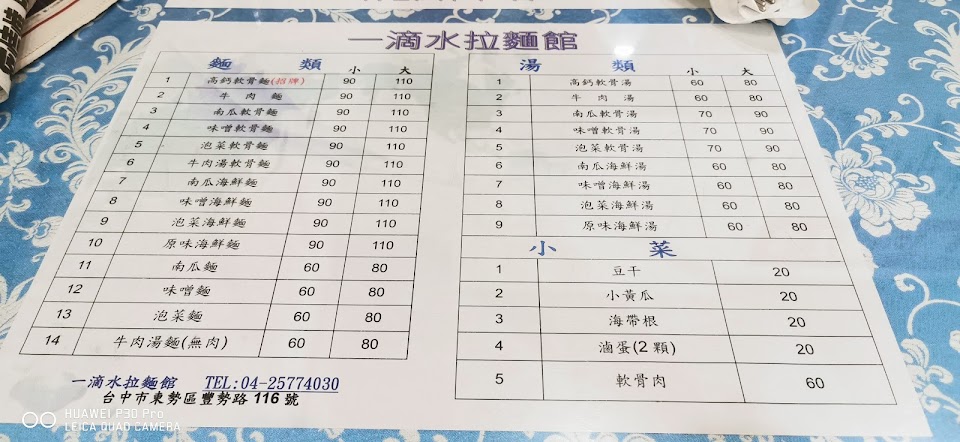 一滴水拉麵館
麵 類 小 大
1 高鈣軟骨麵(招牌) 90 110
2 牛肉 麵 90 110
3 南瓜軟骨麵 90 110
4 味噌軟骨麵 90 110
5 泡菜軟骨麵 90 110
6 牛肉湯軟骨麵 90 110
7 南瓜海鮮麵 90 110
8 味噌海鮮麵 90 110
9 泡菜海鮮麵 90 110
10 原味海鮮麵 90 110
11 南瓜麵 60 80
12 味噌麵 60 80
13 泡菜麵 60 80
14 牛肉湯麵(無肉) 60 80
湯 類 小 大
1 高鈣軟骨湯 60 80
2 牛 肉 湯 60 80
3 南瓜軟骨湯 70 90
4 味噌軟骨湯 70 90
5 泡菜軟骨湯 70 90
6 南瓜海鮮湯 60 80
7 味噌海鮮湯 60 80
8 泡菜海鮮湯 60 80
9 原味海鮮湯 60 80
小 菜
1 豆干 20
2 小黃瓜 20
3 海帶根 20
4 滷蛋(2顆) 20
5 軟骨肉 60
一滴水拉麵館 TEL:04-25774030
台中市東勢區豐勢路116號
HUAWEI P30 Pro
LEICA QUAD CAMERA